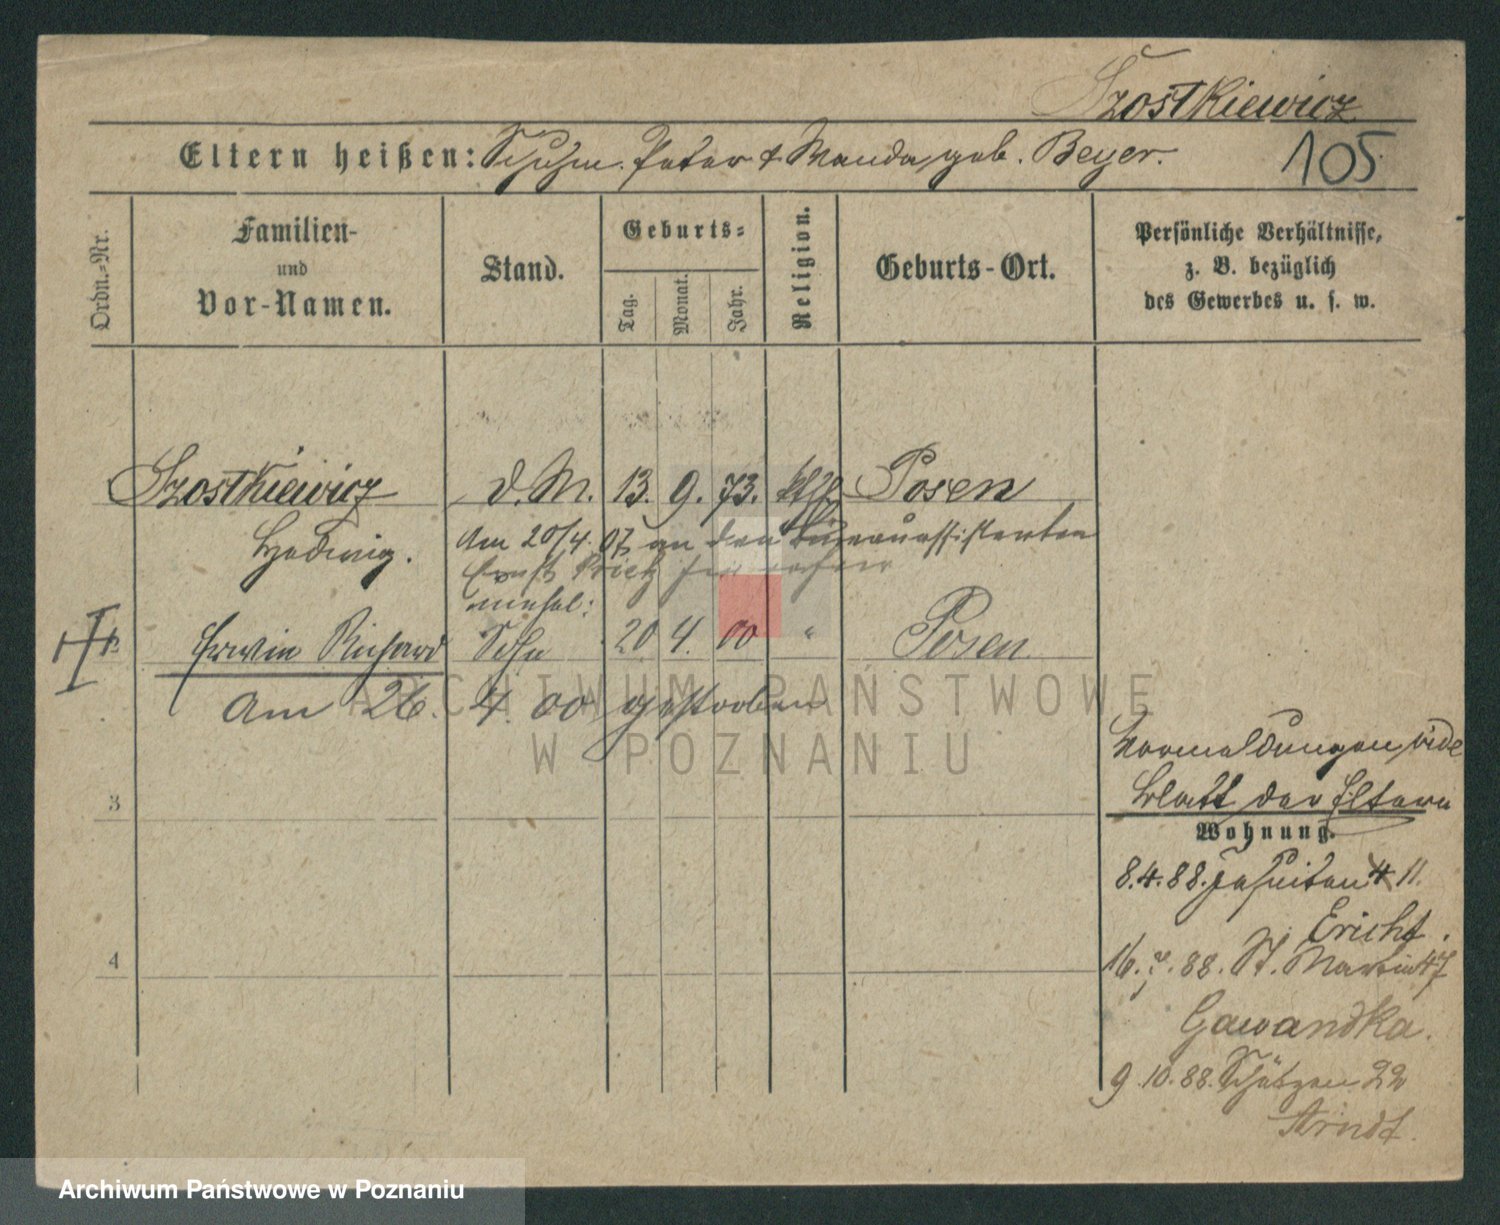 Szostkiewicz
Eltern heißen: Schuhm. Peter & Wanda, geb. Beyer.
105
Ordn.-Nr.
Familien-
und
Vor-Namen.
Stand.
Geburts-
Tag.
Monat.
Jahr.
Religion.
Geburts-Ort.
Persönliche Verhältnisse,
z. B. bezüglich
des Gewerbes u. s. w.
Szostkiewicz d. M. 13. 9. 73. Posen
Hedwig.
Am 20/4. 07 an den Büreauassistenten
Ernst
unehel:
Erwin Richard Sohn 20 4. 00 " Posen
Am 26. 4. 00 gestorben
Vormeldungen vide
Blatt der Eltern
3
Wohnung.
8.4.88. Jesuiten 11.
Ericht.
4
16. 7. 88. St. Martin 47
Gawandka.
9.10.88. Schützen 22
Arndt.
ARCHIWUM PAŃSTWOWE
W POZNANIU
Archiwum Państwowe w Poznaniu